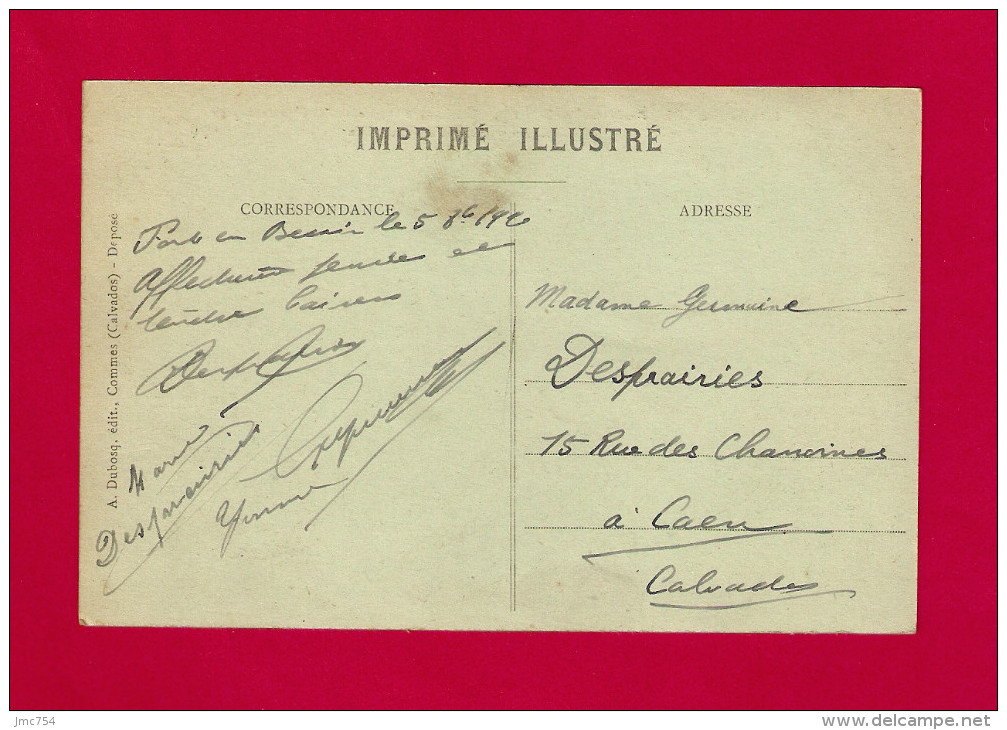 IMPRIMÉ ILLUSTRÉ
CORRESPONDANCE
Port en Bessin le 5
Affectueuses pensées et
tendre baisers
Marie
Desprairies
Yvonne
A. Dubosq. édit., Commes (Calvados) - Déposé
ADRESSE
Madame Germaine
Desprairies
15 Rue des Chanoines
à Caen
Calvados
jmc754
www.delcampe.net